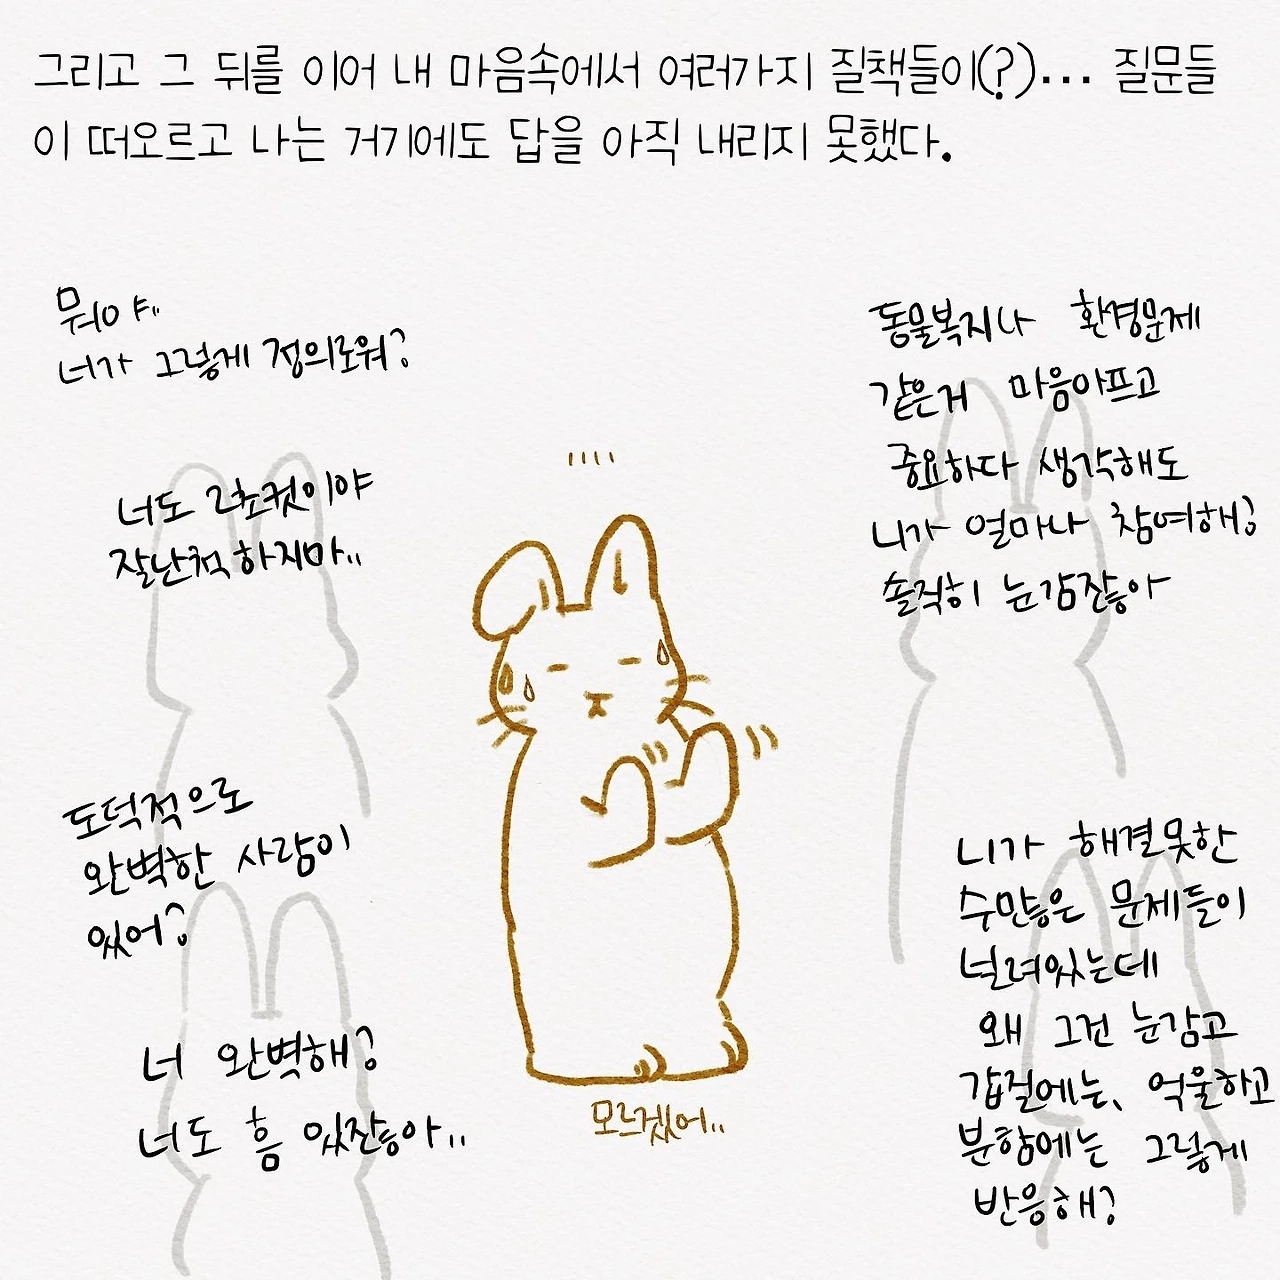 그리고 그 뒤를 이어 내 마음속에서 여러가지 질책들이(?)... 질문들
이 떠오르고 나는 거기에도 답을 아직 내리지 못했다.
뭐야..
너가 그렇게 정의로워?
너도 2초컷이야
잘난척 하지마..
도덕적으로
완벽한 사람이
있어?
너 완벽해?
너도 흠 있잖아..
모르겠어..
동물복지나 환경문제
같은거 마음아프고
중요하다 생각해도
니가 얼마나 참여해?
솔직히 눈감잖아
니가 해결못한
수많은 문제들이
널려있는데
왜 그건 눈감고
갑질에는, 억울하고
분함에는 그렇게
반응해?